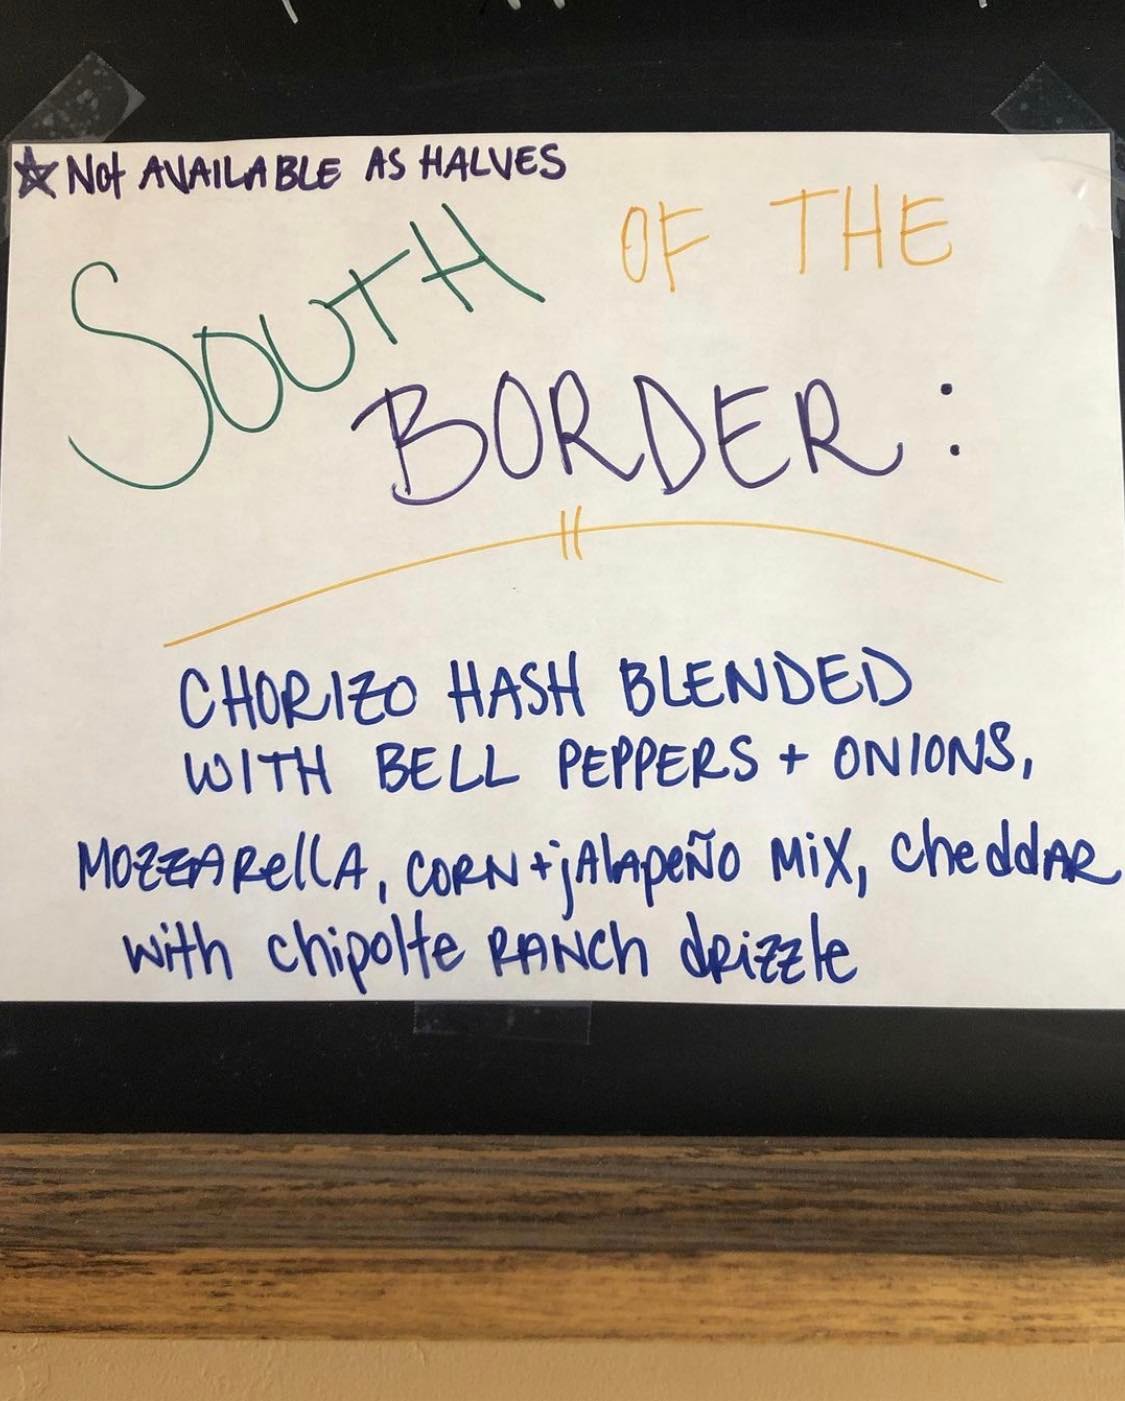 ☆ Not AVAILABLE AS HALVES
SOUTH OF THE
BORDER:
CHORIZO HASH BLENDED
WITH BELL PEPPERS + ONIONS,
MOZZARellA, CORN + jAlApeÑo MiX, CheddAR
with chipolte RANCh dRizzle